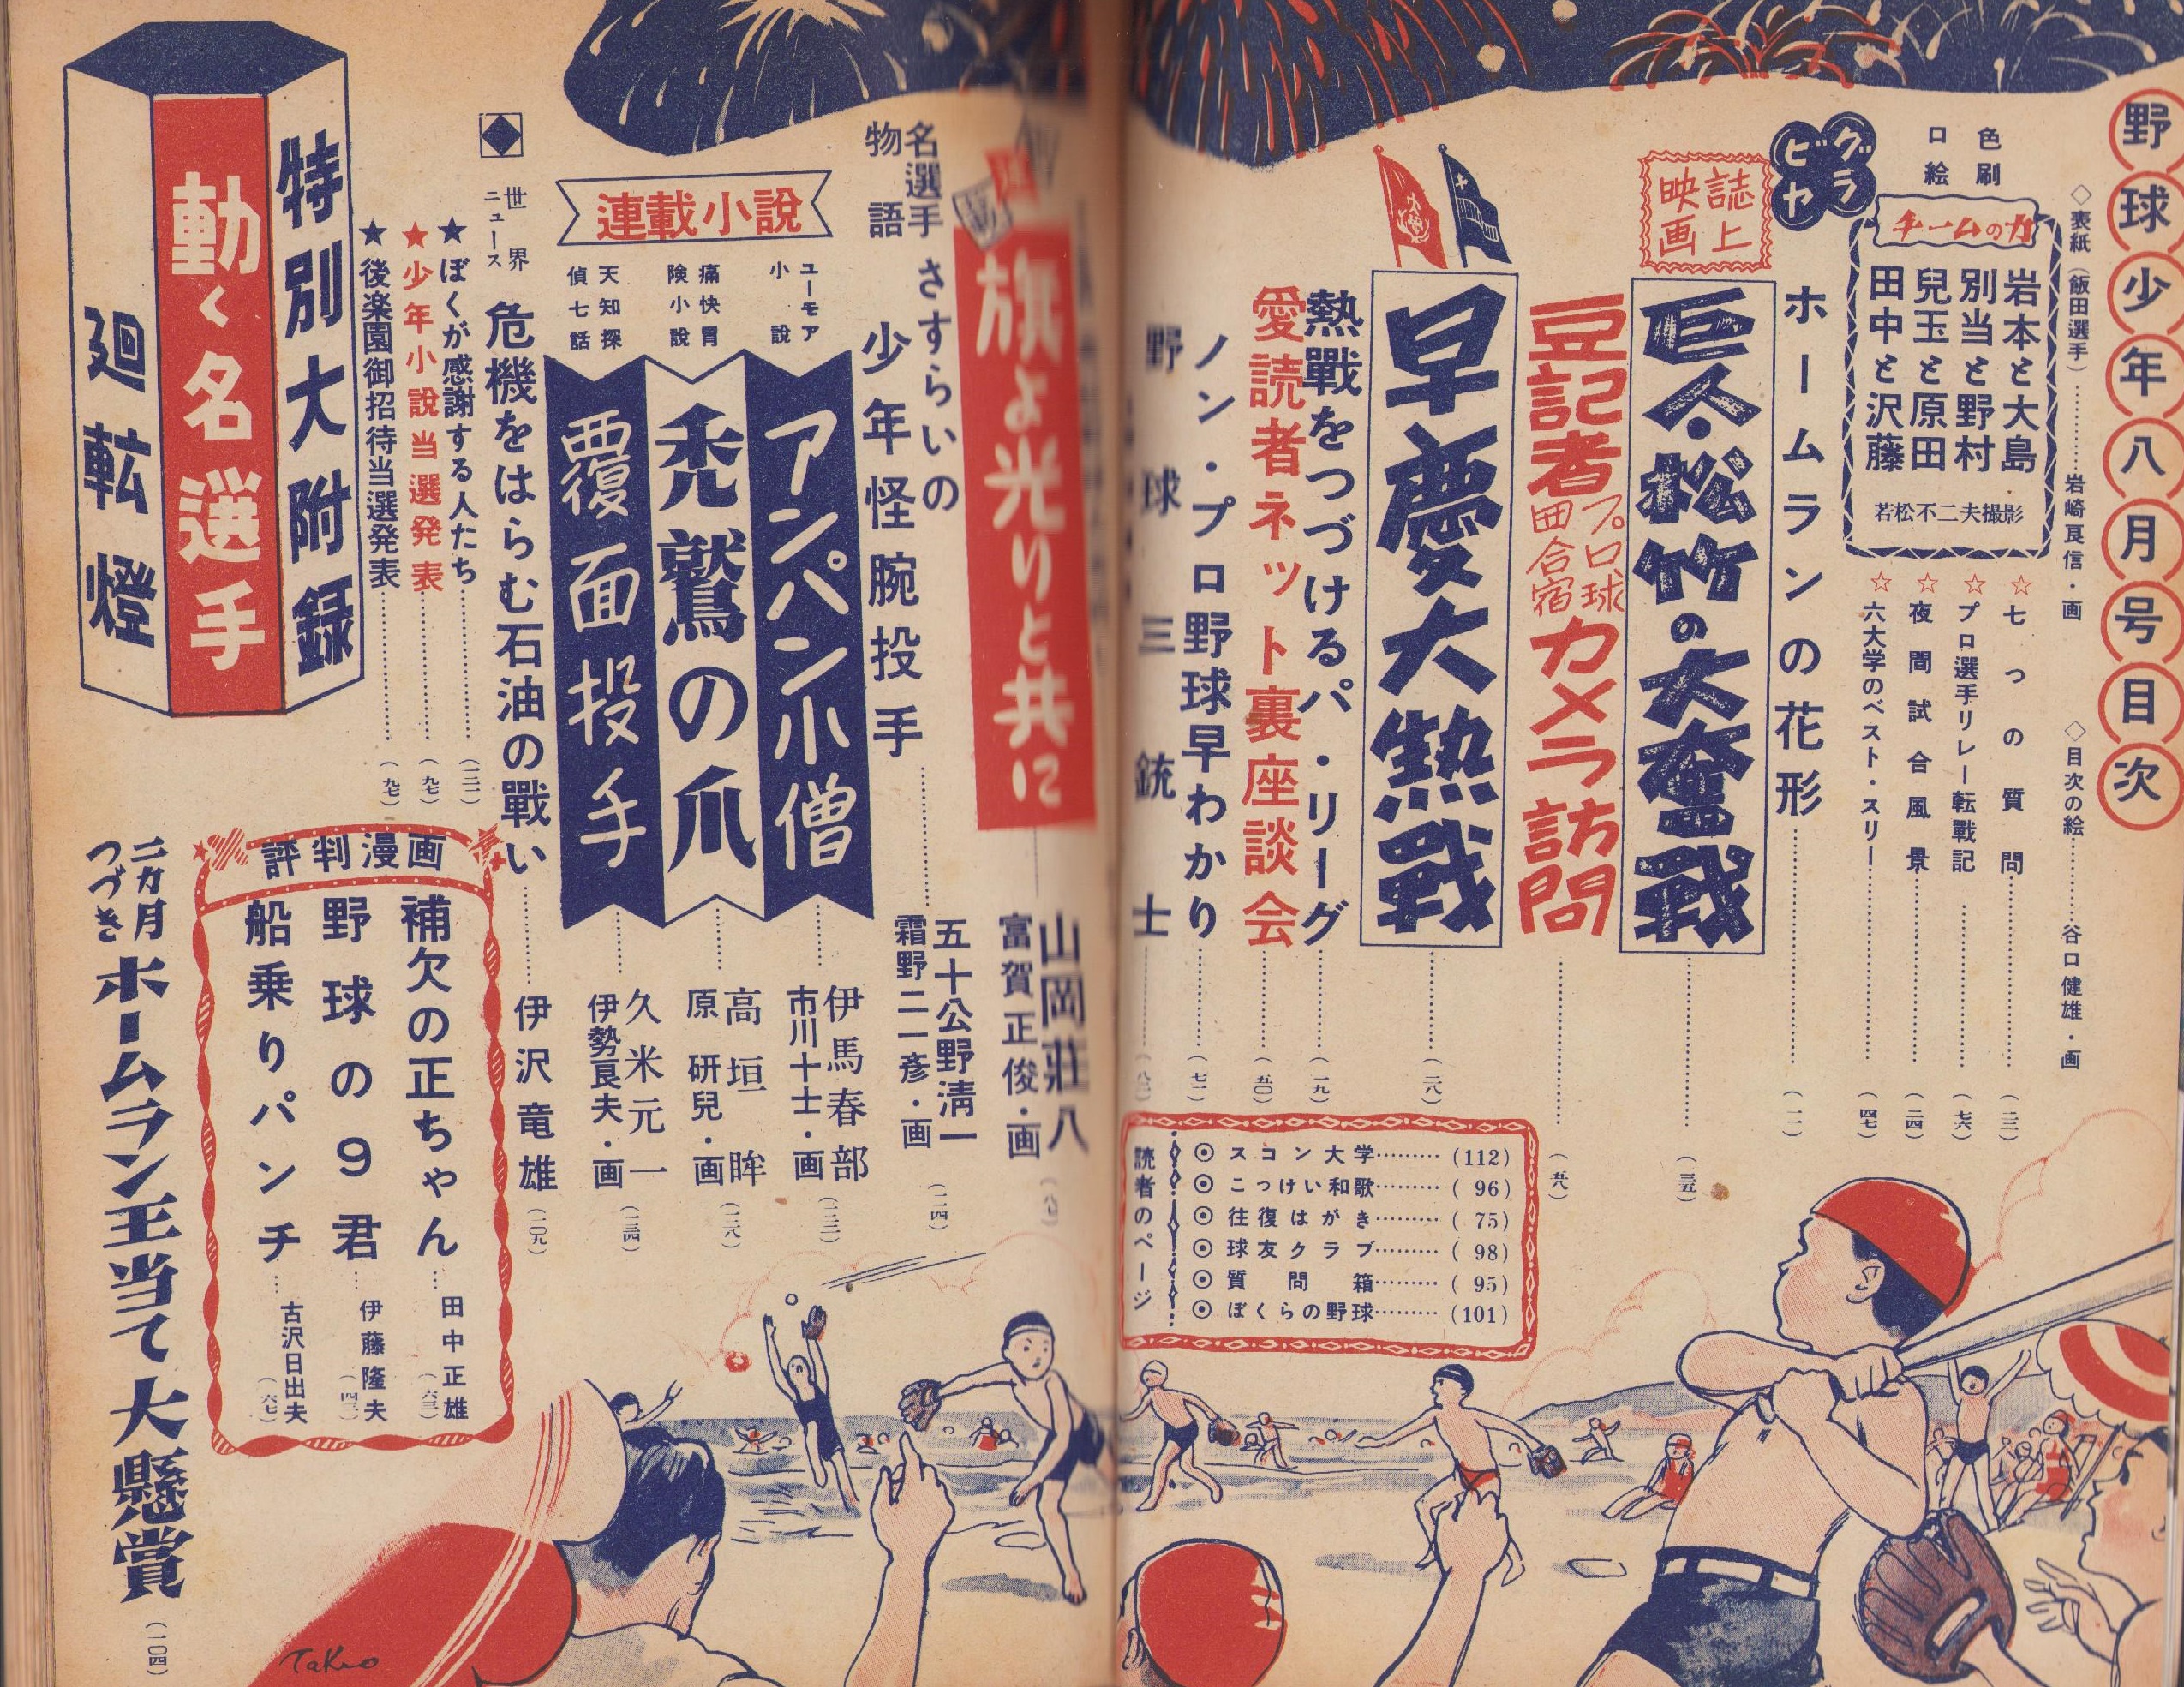 野球少年八月号目次
◇表紙(飯田選手)…………岩崎良信・画
◇目次の絵…………谷口健雄・画
色刷口絵
チームの力
岩本と大島
別当と野村
兒玉と原田
田中と沢藤
若松不二夫撮影
☆七つの質問…………(三三)
☆プロ選手リレー転戰記…………(七六)
☆夜間試合風景…………(二四)
☆六大学のベスト・スリー…………(四七)
グラビヤ
ホームランの花形…………(一一)
誌上映画
巨人・松竹の大奮戰…………(三五)
豆記者プロ球田合宿カメラ訪問…………(五八)
早慶大熱戰…………(二八)
熱戰をつづけるパ・リーグ…………(一九)
愛読者ネット裏座談会…………(五〇)
ノン・プロ野球早わかり…………(七二)
野球三銃士…………
読者のページ
◉スコン大学………(112)
◉こっけい和歌………(96)
◉往復はがき………(75)
◉球友クラブ………(98)
◉質問箱………(95)
◉ぼくらの野球………(101)
旗よ光りと共に
山岡莊八
富賀正俊・画
名選手物語
さすらいの少年怪腕投手…………
五十公野清一
霜野二一彦・画
(一二四)
連載小說
ユーモア小説
アンパン小僧…………
伊馬春部
市川十士・画
(一三二)
痛快冒険小説
禿鷲の爪…………
高垣眸
原研兒・画
(一二八)
天知探偵七話
覆面投手…………
久米元一
伊勢良夫・画
(一三四)
◆世界ニュース
危機をはらむ石油の戰い…………伊沢竜雄(一〇九)
★ぼくが感謝する人たち…………
★少年小說当選発表…………(九七)
★後楽園御招待当選発表…………(九七)
特別大附録
動く名選手
廻転燈
評判漫画
補欠の正ちゃん…田中正雄(六三)
野球の9君…伊藤隆夫
船乗りパンチ…古沢日出夫(六七)
二カ月つづき
ホームラン王当て大懸賞(一〇四)
TaKeo